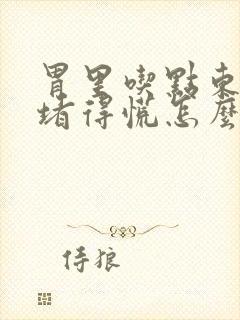 胃里喫點東
堵得慌怎麼
侍狼